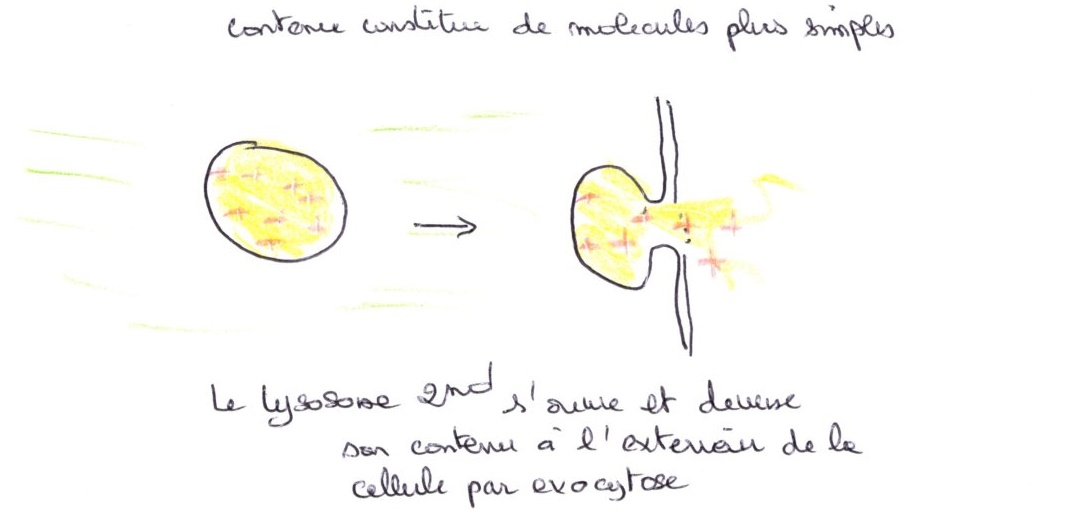 contenu constitué de molecules plus simples
Le lysosome 2nd s'ouvre et deverse
son contenu à l'exterieur de la
cellule par exocytose